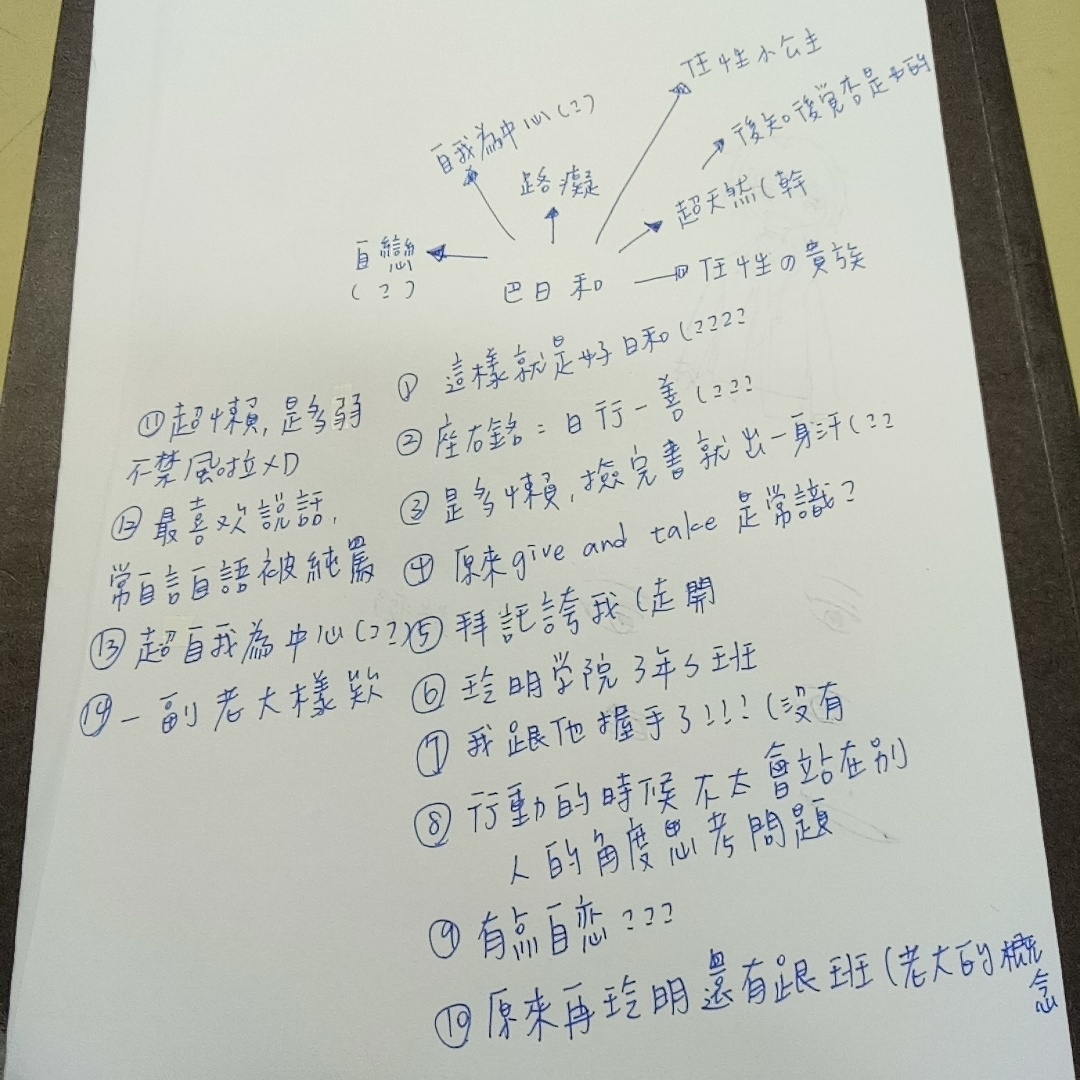 任性小公主
自我為中心(??)
後知後覺杏是也的
路癡
超天然(幹
自戀
(??)
巴日和
任性の貴族
① 這樣就是好日和(????
② 座右銘:日行一善(???
③ 是多懶,撿完書就出一身汗(??
④ 原來give and take 是常識?
⑤ 拜託誇我(走開
⑥ 玲明学院3年S班
⑦ 我跟他握手了!!!(沒有
⑧ 行動的時候不太會站在别
人的角度思考問題
⑨ 有点自恋???
⑩ 原來再玲明還有跟班(老大的概
念
⑪超懶,是多弱
不禁風啦XD
⑫ 最喜欢說話,
常自言自語被純罵
⑬ 超自我為中心(??)
⑭ 一副老大樣欸